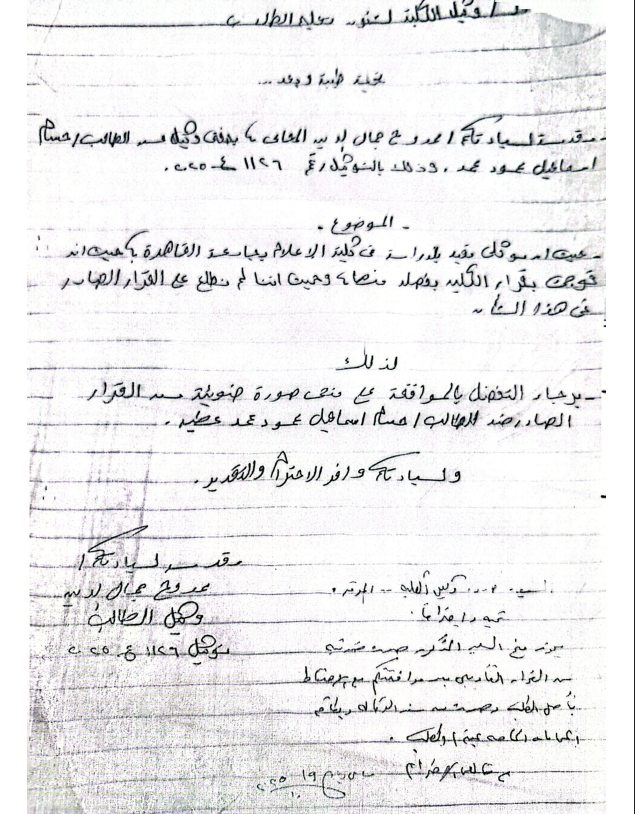 أ.د/ وكيل الكلية لشئون التعليم والطلاب
تحية طيبة وبعد..
مقدمه لسيادتكم / ممدوح جمال الدين المحامي بصفتي وكيل عن الطالب / حسام
اسماعيل محمود محمد. وذلك بالتوكيل رقم ١١٢٦ ع ٢٠٢٥.
- الموضوع -
- حيث ان موكلي مقيد بالدراسة في كلية الاعلام بجامعة القاهرة حيث انه
فوجئ بقرار الكلية بفصله منها وحيث اننا لم نطلع على القرار الصادر
في هذا الشأن
لذلك
- برجاء التفضل بالموافقة على منحي صورة ضوئية من القرار
الصادر ضد الطالب / حسام اسماعيل محمود محمد عطيه.
ولسيادتكم وافر الاحترام والتقدير.
مقدمه لسيادتكم /
ممدوح جمال الدين
وكيل الطالب
بتوكيل ١١٢٦ ع ٢٠٢٥
السيد وكيل الكلية -
تحية واحتراما
منح صورة ضوئية
من القرار التأديبي بعد موافقتكم مع الاحتفاظ
بأصل الطلب وصورة من
مع خالص الاحترام